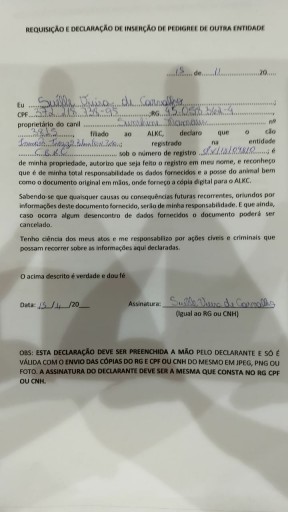 REQUISIÇÃO E DECLARAÇÃO DE INSERÇÃO DE PEDIGREE DE OUTRA ENTIDADE
15 de 11 20
Eu Suilly Viana de Carvalho
CPF RG
proprietário do canil nº
filiado ao ALKC, declaro que o cão
registrado na entidade
sob o número de registro é
de minha propriedade, autorizo que seja feito o registro em meu nome, e reconheço
que é de minha total responsabilidade os dados fornecidos e a posse do animal bem
como o documento original em mãos, onde forneço a cópia digital para o ALKC.
Sabendo-se que quaisquer causas ou consequências futuras recorrentes, oriundos por
informações deste documento fornecido, serão de minha responsabilidade. E que ainda,
caso ocorra algum desencontro de dados fornecidos o documento poderá ser
cancelado.
Tenho ciência dos meus atos e me responsabilizo por ações cíveis e criminais que
possam recorrer sobre as informações aqui declaradas.
O acima descrito é verdade e dou fé
Data: /20 Assinatura: de Carvalho
(Igual ao RG ou CNH)
OBS: ESTA DECLARAÇÃO DEVE SER PREENCHIDA A MÃO PELO DECLARANTE E SÓ É
VÁLIDA COM O ENVIO DAS CÓPIAS DO RG E CPF OU CNH DO MESMO EM JPEG, PNG OU
FOTO. A ASSINATURA DO DECLARANTE DEVE SER A MESMA QUE CONSTA NO RG CPF
OU CNH.